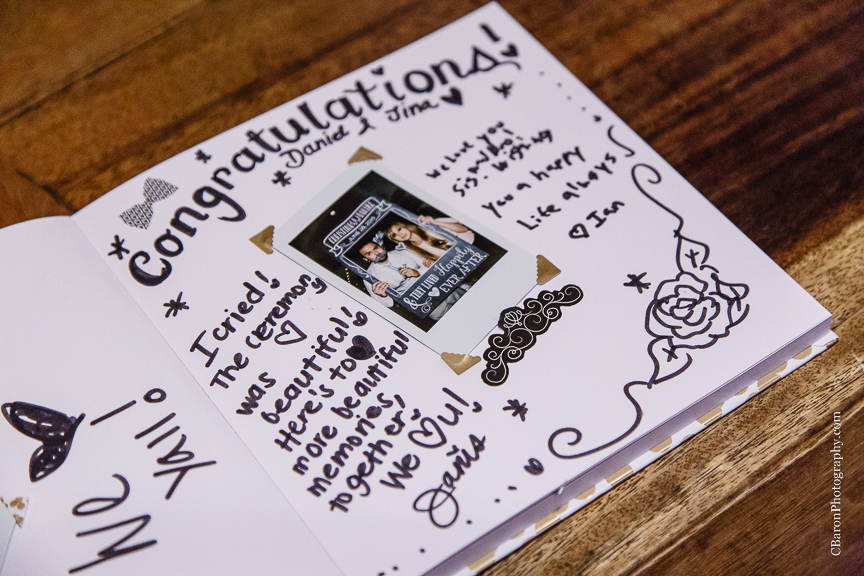 Congratulations!
Daniel & Jina
I cried!
The ceremony
was
beautiful!
Here's to
more beautiful
memories,
together!
We U!
Janis
we love you
sis. Wishing
you a happy
Life always
Ian
& they lived Happily
EVER AFTER
We
Yall!
CBaronPhotography.com